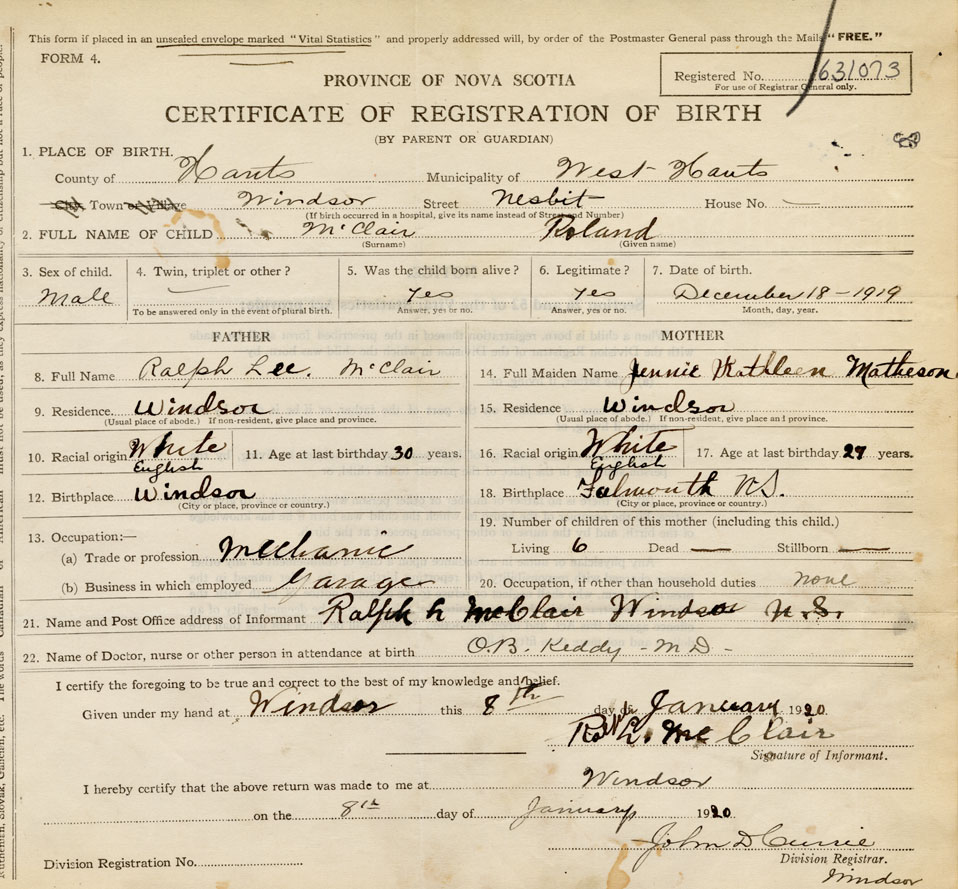 This form if placed in an unsealed envelope marked "Vital Statistics" and properly addressed will, by order of the Postmaster General pass through the Mails "FREE."
FORM 4.
Registered No. 631073
For use of Registrar General only.
PROVINCE OF NOVA SCOTIA
CERTIFICATE OF REGISTRATION OF BIRTH
(BY PARENT OR GUARDIAN)
1. PLACE OF BIRTH.
County of Hants Municipality of West Hants
City Town or Village Windsor Street Nesbit House No. —
(If birth occurred in a hospital, give its name instead of Street and Number)
2. FULL NAME OF CHILD McClair Roland
(Surname) (Given name)
3. Sex of child. 4. Twin, triplet or other? 5. Was the child born alive? 6. Legitimate? 7. Date of birth.
Male — yes yes December 18 - 1919
To be answered only in the event of plural birth. Answer, yes or no. Answer, yes or no. Month, day, year.
FATHER MOTHER
8. Full Name Ralph Lee. McClair 14. Full Maiden Name Jennie Kathleen Matheson
9. Residence. Windsor 15. Residence Windsor
(Usual place of abode.) If non-resident, give place and province. (Usual place of abode.) If non-resident, give place and province.
10. Racial origin White English 11. Age at last birthday 30 years. 16. Racial origin White English 17. Age at last birthday 27 years.
12. Birthplace Windsor 18. Birthplace Falmouth N.S.
(City or place, province or country.) (City or place, province or country.)
13. Occupation:— 19. Number of children of this mother (including this child.)
(a) Trade or profession Mechanic Living 6 Dead — Stillborn —
(b) Business in which employed Garage 20. Occupation, if other than household duties none
21. Name and Post Office address of Informant Ralph L McClair Windsor N.S.
22. Name of Doctor, nurse or other person in attendance at birth O.B. Keddy - M D -
I certify the foregoing to be true and correct to the best of my knowledge and belief.
Given under my hand at Windsor this 8th day of January 1920
L. McClair
Signature of Informant.
I hereby certify that the above return was made to me at Windsor
on the 8th day of January 1920.
John D Currie
Division Registrar.
Division Registration No. Windsor